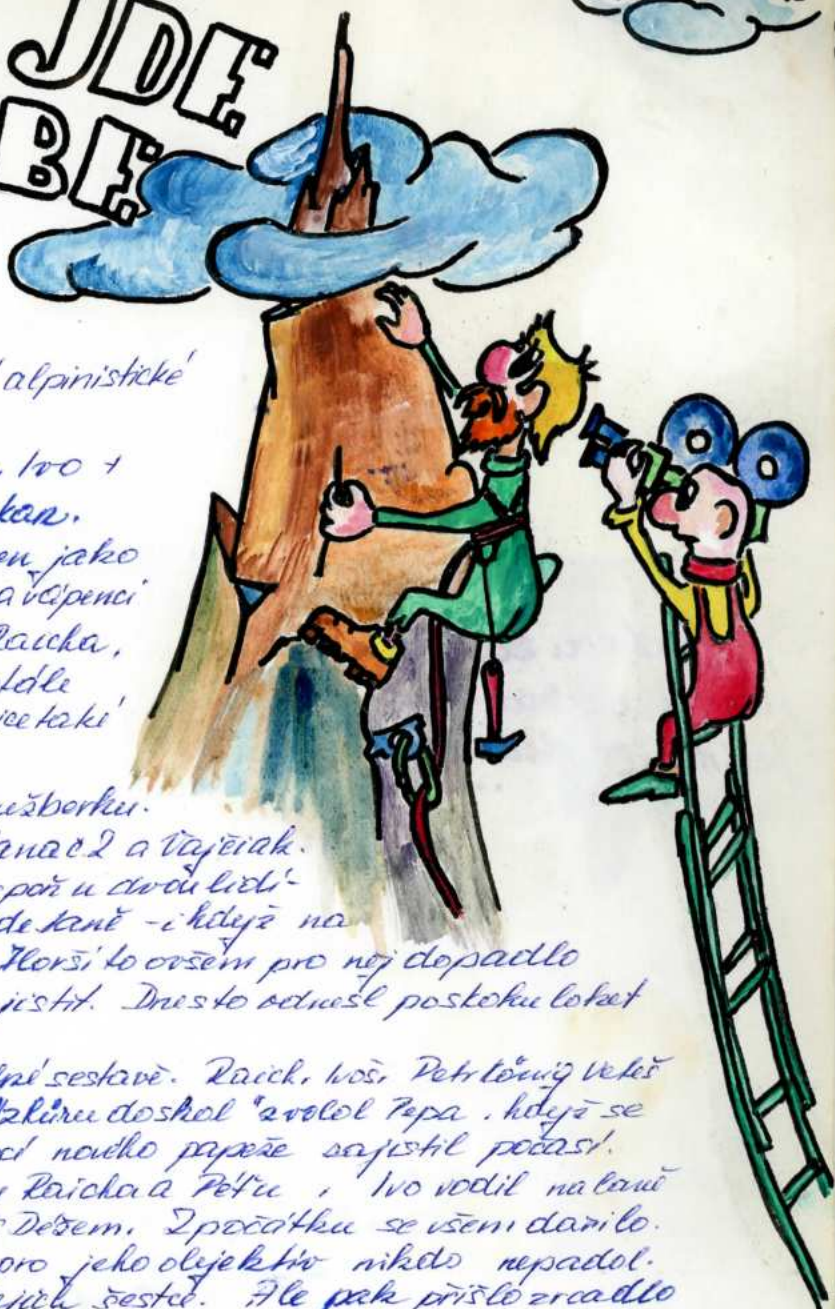 JDE
BE
alpinistické
Ivo +
kan.
en jako
a vápenci
Raicha,
stále
ice také
užberku.
anač 2 a Vajčiak.
spoň u dvou lidí-
de laně - i když na
Horší to ovšem pro něj dopadlo
jistit. Dnes to odnesl po skoku loket
sestavě. Raich, Petr König
Vzhůru do skal" zvolol Pepa, když se
nového papeže zajistil počasí.
Raicha a Péťu, Ivo vodil na laně
Dežem. Zpočátku se všem dařilo.
pro jeho objektiv nikdo nepadol.
jich šestce. Ale pak přišlo zrcadlo